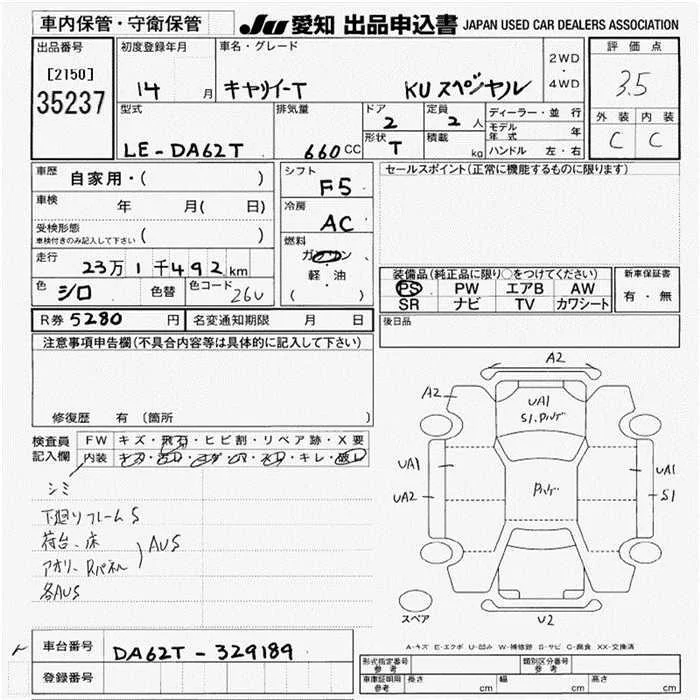 車内保管・守衛保管
JU 愛知 出品申込書 JAPAN USED CAR DEALERS ASSOCIATION
出品番号
[2150]
35237
初度登録年月
14 月
車名・グレード
キャリイーT KUスペシャル
2WD
・
4WD
評価点
3.5
外装 内装
C C
型式
LE-DA62T
排気量
660 CC
ドア
2
定員
2 人
形状
T
積載
kg
ディーラー・並行
モデル年式 年
ハンドル 左・右
車歴
自家用・( )
車検
年 月( 日)
受検形態
車検付きのみ記入して下さい ( )
走行
23万1千492km
色
シロ
色替
色コード
26U
シフト
F5
冷房
AC
燃料
ガソリン
・
軽・油
( )
セールスポイント(正常に機能するものに限ります)
装備品(純正品に限り○をつけてください)
PS PW エアB AW
SR ナビ TV カワシート
新車保証書
有・無
R券 5280 円
名変通知期限 月 日
後日品
注意事項申告欄(不具合内容等は具体的に記入して下さい)
修復歴 有 (箇所 )
検査員記入欄
FW キズ・飛石・ヒビ割・リペア跡・X要
内装
キレ・破レ
シミ
下廻りフレームS
荷台、床
アオリ、Rパネル
AUS
各AUS
A2
A2
UA1
S1.
UA1
UA2
UA1
S1
U2
スペア
A-キズ E-エクボ U-凹み W-補修跡 S-サビ C-腐食 XX-交換済
車台番号
DA62T-329189
登録番号
形式指定番号
参考
類別区分番号
参考
車庫証明用
参考
長さ cm
幅 cm
高さ cm